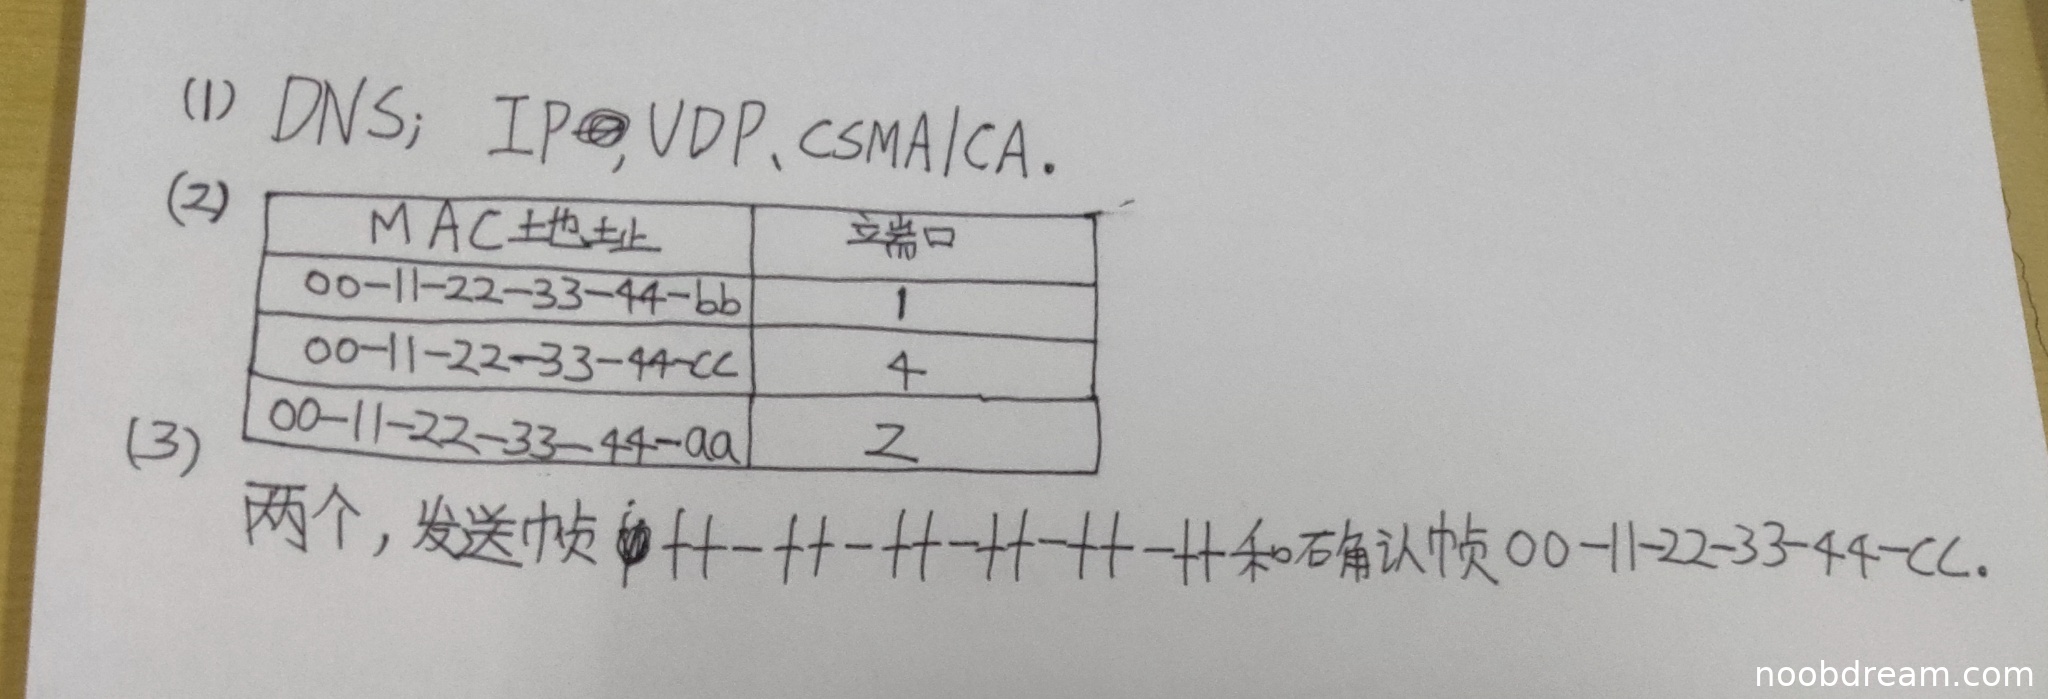 (1) DNS; IP, UDP、CSMA/CA.
(2)
MAC地址 端口
00-11-22-33-44-bb 1
00-11-22-33-44-cc 4
00-11-22-33-44-aa 2
(3)
两个, 发送帧 和确认帧 00-11-22-33-44-CC.
noobdream.com